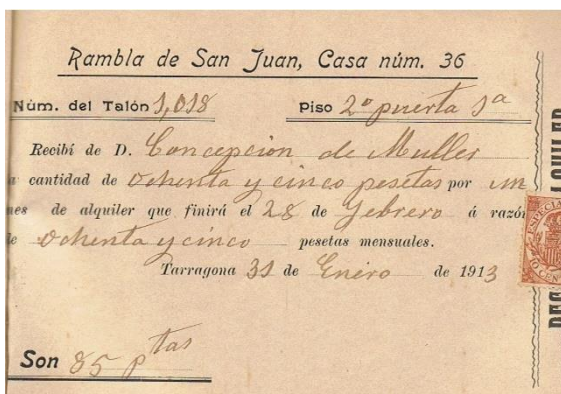 Rambla de San Juan, Casa núm. 36
Núm. del Talón 1,018 Piso 2º puerta 1ª
Recibí de D. Concepcion de Muller
a cantidad de ochenta y cinco pesetas por un
mes de alquiler que finirá el 28 de Febrero á razón
de ochenta y cinco pesetas mensuales.
Tarragona 31 de Enero de 1913
Son 85 ptas
ESPECIA
10 CEN
ALQUILER